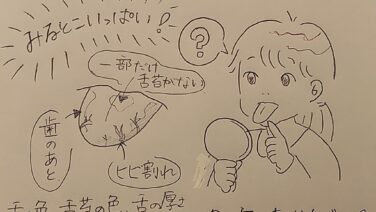 みるとこいっぱい!
?
一部だけ
舌苔がない
歯のあと
ヒビ割れ
舌の厚さ